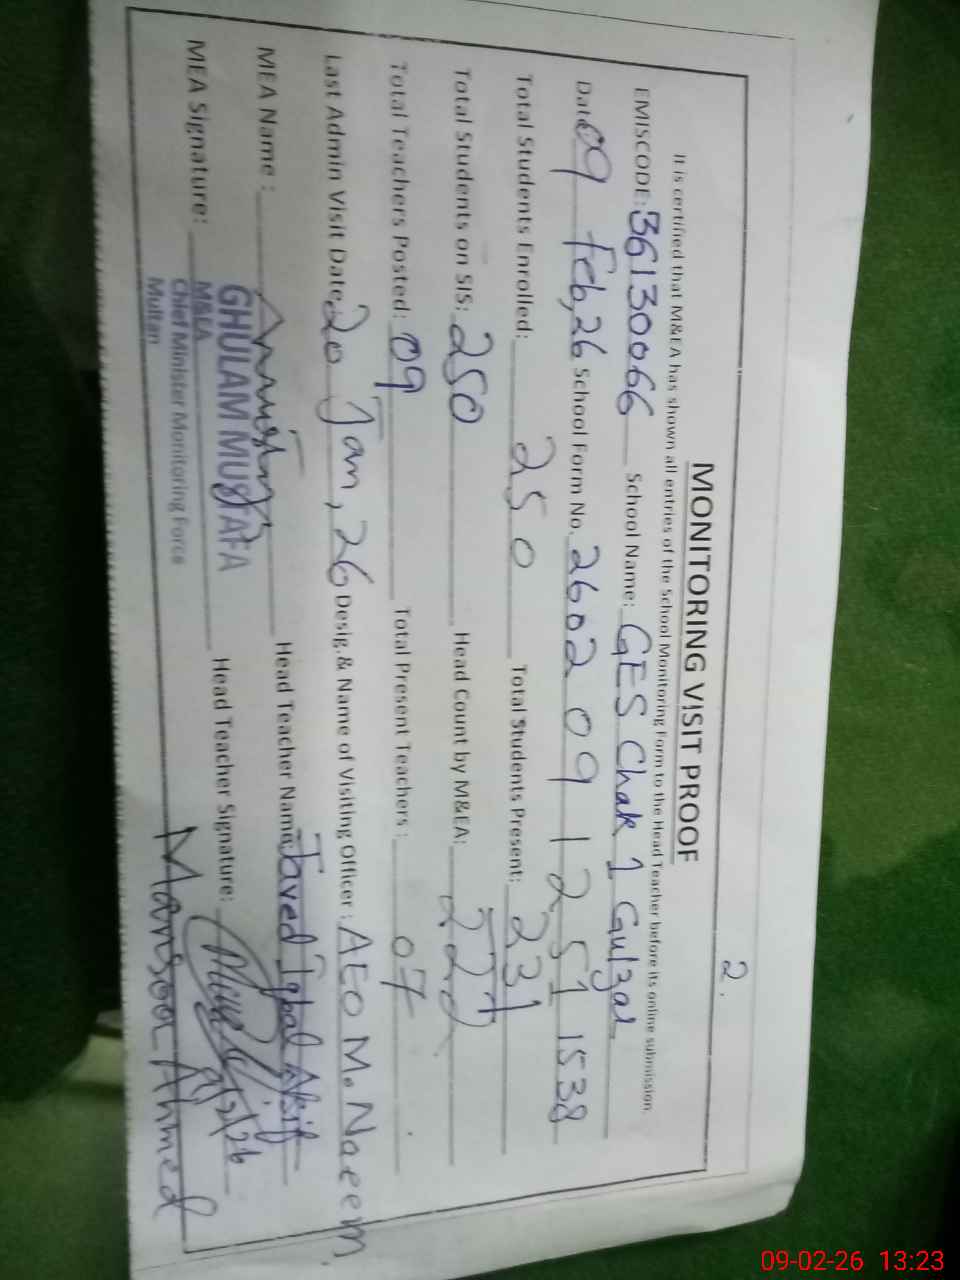 2.
MONITORING VISIT PROOF
It is certified that M&EA has shown all entries of the School Monitoring Form to the Head Teacher before its online submission.
EMISCODE: 36130066 School Name: GES Chak 1 Gulzar
Date 09 Feb, 26 School Form No. 2602 09 1 2 51 1538
Total Students Enrolled: 250 Total Students Present: 231
Total Students on SIS: 250 Head Count by M&EA: 222
Total Teachers Posted: 09 Total Present Teachers: 07
Last Admin Visit Date 20 Jan, 26 Desig.& Name of Visiting Officer: AEO M. Naeem
MEA Name: Head Teacher Name: Javed Iqbal Asif
MEA Signature: Head Teacher Signature:
GHULAM MUSTAFA
M&EA
Chief Minister Monitoring Force
Multan
9/2/26
Mansoor Ahmed
09-02-26 13:23